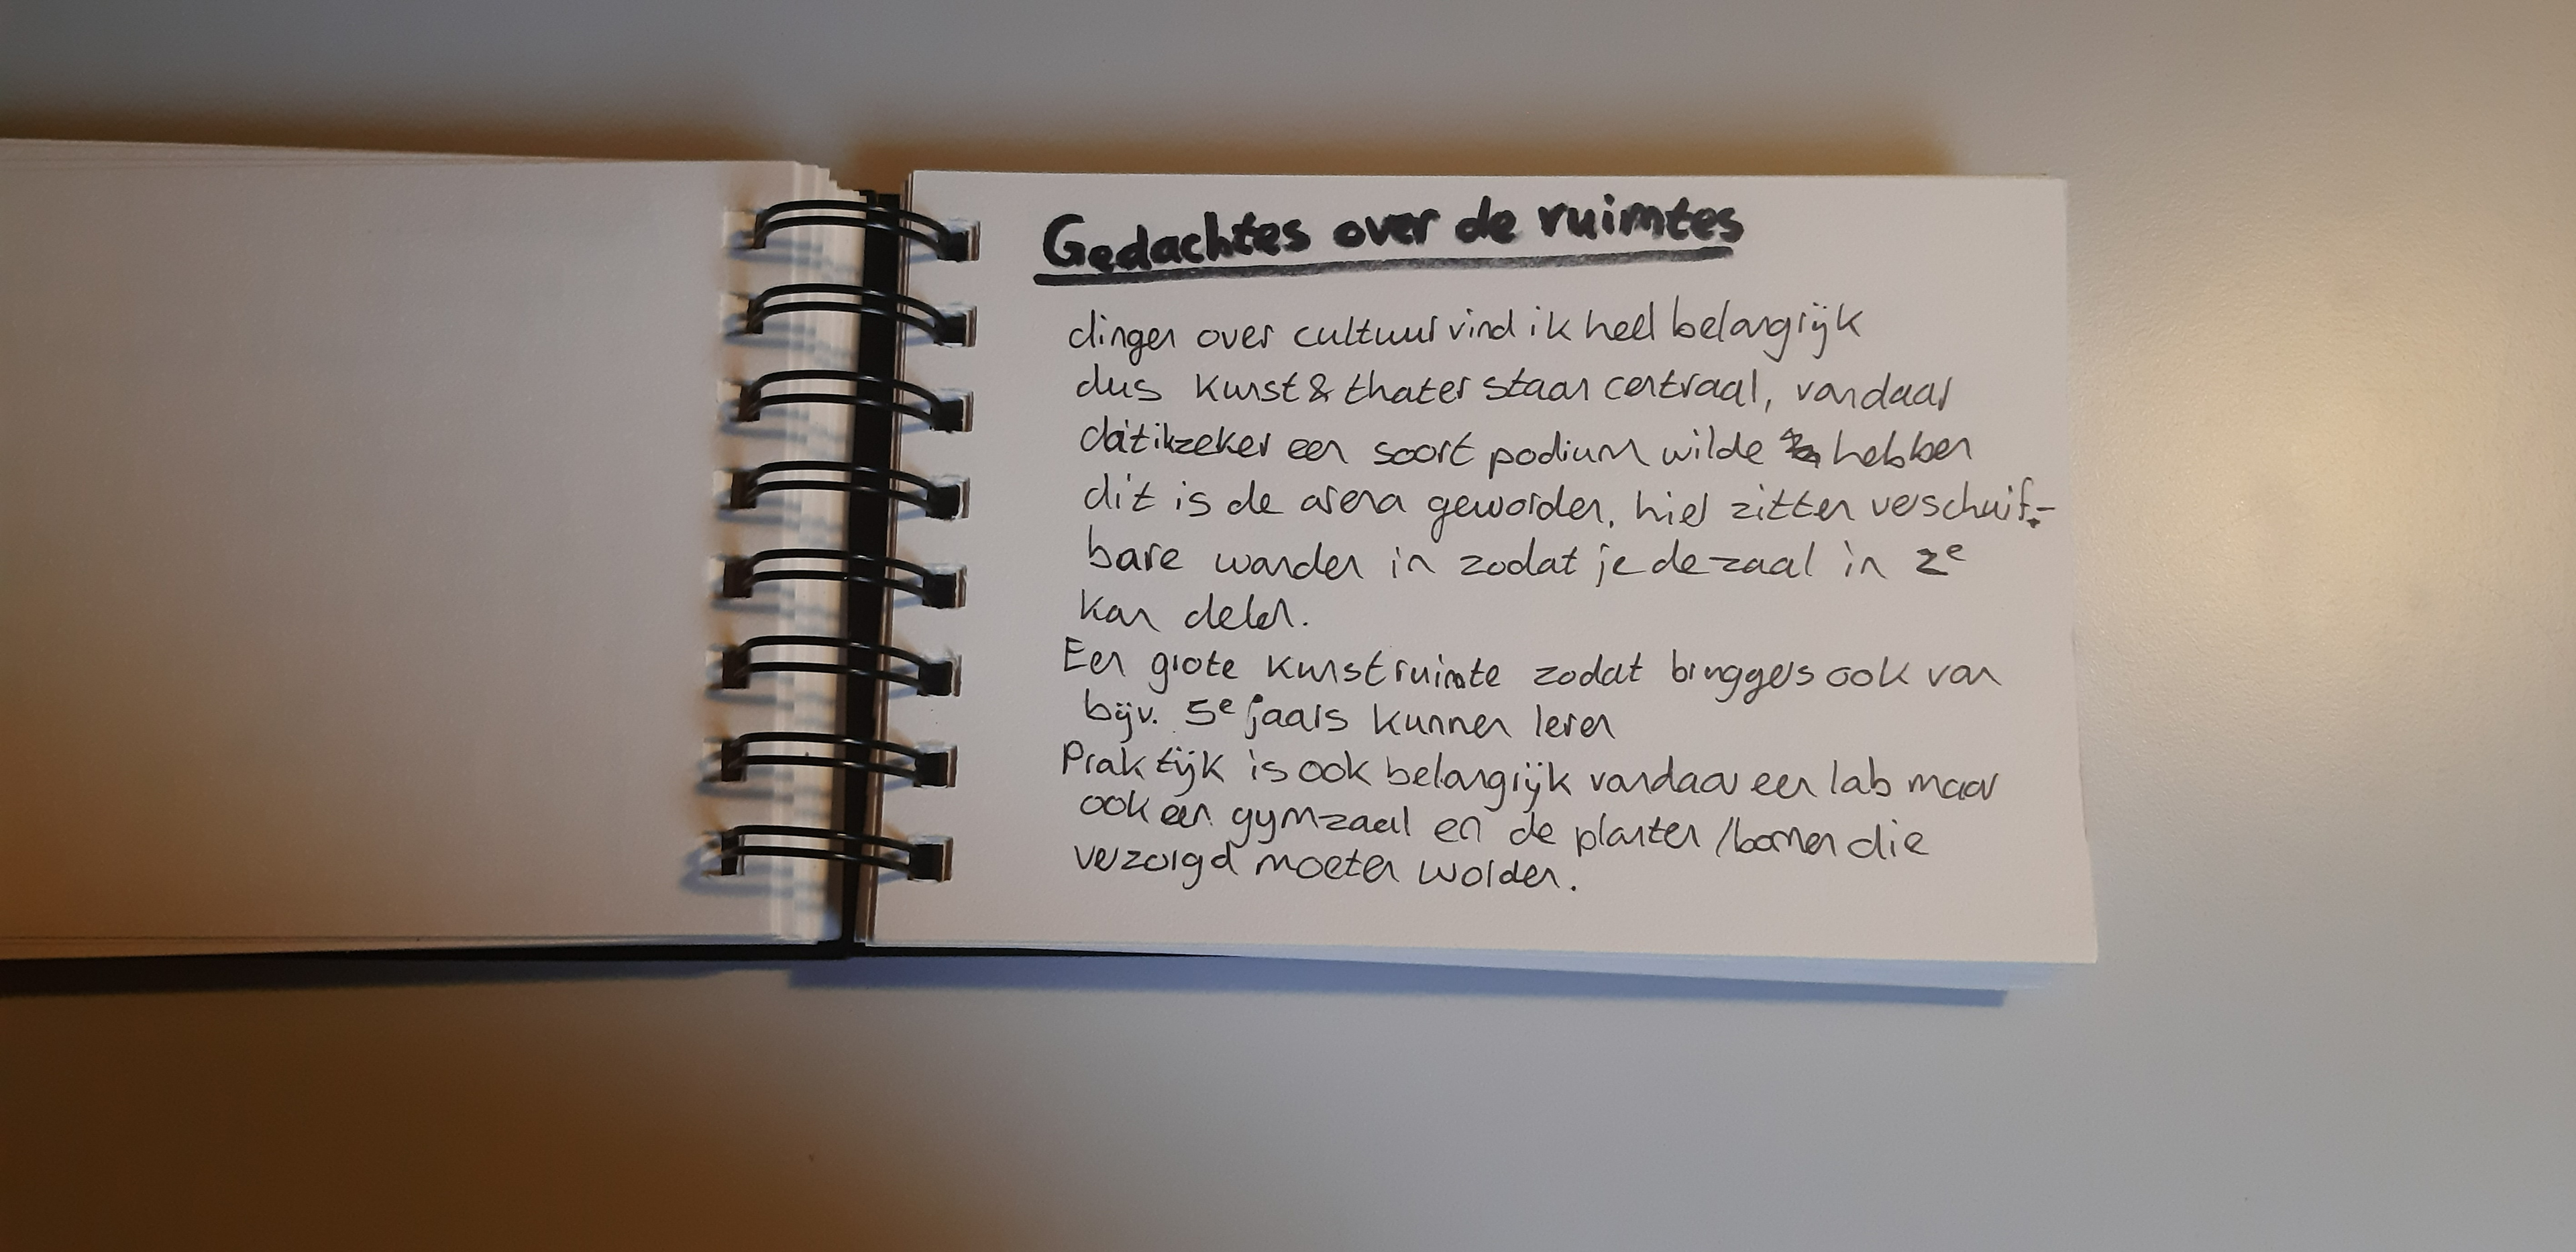 Gedachtes over de ruimtes
dingen over cultuur vind ik heel belangrijk
dus kunst & thater staan centraal, vandaar
dat ik zeker een soort podium wilde hebben
dit is de arena geworden, hier zitten verschuif-
bare wanden in zodat je de zaal in 2e
kan delen.
Een grote kunstruimte zodat bruggers ook van
bijv. 5e jaars kunnen leren
Praktijk is ook belangrijk vandaar een lab maar
ook een gymzaal en de planten/bomen die
verzorgd moeten worden.